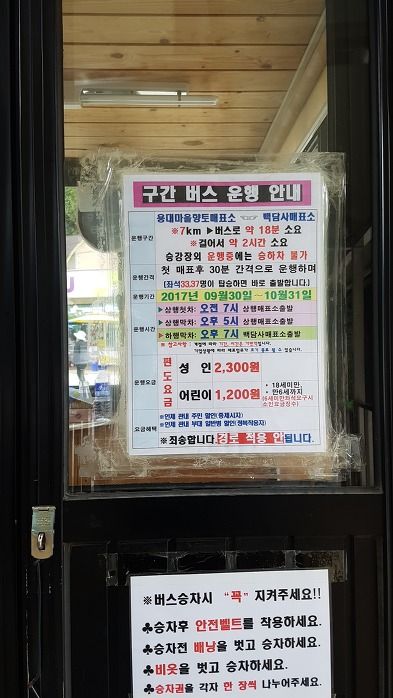 구간 버스 운행 안내
운행구간
용대마을향토매표소 백담사매표소
※7km ▶버스로 약 18분 소요
※걸어서 약 2시간 소요
승강장외 운행중에는 승하차 불가
운행간격
첫 매표후 30분 간격으로 운행하며
[좌석33,37명이 탑승하면 바로 출발합니다.]
운행기간
2017년 09월30일 ~10월31일
운행시간
▶상행첫차: 오전 7시 상행매표소출발
▶상행막차: 오후 5시 상행매표소출발
▶하행막차: 오후 7시 백담매표소출발
※ 참고사항 :
운행요금
편도요금
성 인 2,300원
어린이 1,200원
* 18세미만,
* 만6세까지
(6세미만좌석요구시
소인요금징수)
요금혜택
※인제 관내 주민 할인(증제시자)
※인제 관내 부대 일반병 할인(정복착용자)
※ 죄송합니다. 경로 적용 안됩니다.
※버스승차시 “꼭” 지켜주세요!!
♣승차후 안전벨트를 착용하세요.
♣승차전 배낭을 벗고 승차하세요.
♣비옷을 벗고 승차하세요.
♣승차권을 각자 한 장씩 나누어주세요.